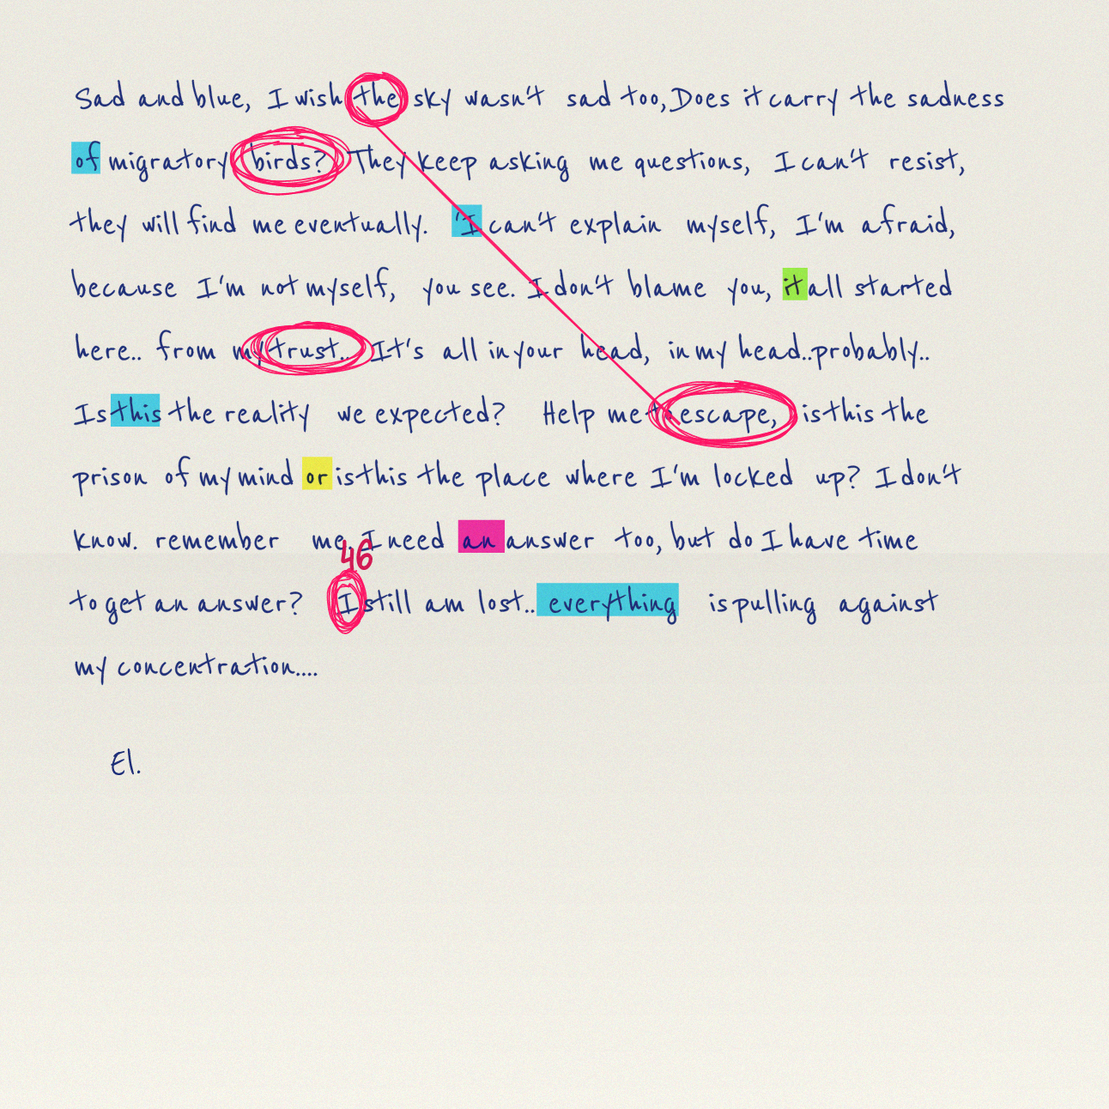 Sad and blue, I wish the sky wasn't sad too, Does it carry the sadness
of migratory birds? They keep asking me questions, I can't resist,
they will find me eventually. "I can't explain myself, I'm afraid,
because I'm not myself, you see. I don't blame you, it all started
here.. from my trust.. It's all in your head, in my head..probably..
Is this the reality we expected? Help me to escape, is this the
prison of my mind or is this the place where I'm locked up? I don't
know. remember me, I need an answer too, but do I have time
46
to get an answer? I still am lost.. everything is pulling against
my concentration....
El.